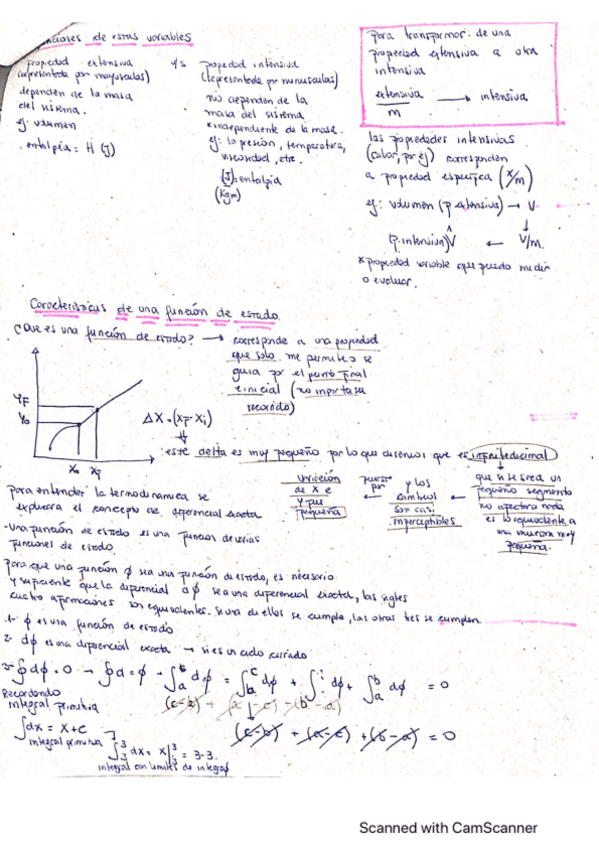 ciones de estas variables
propiedad extensiva
(representada por mayusculas)
dependen de la masa
del sistema.
ej: volumen
entalpia: H (J)
v/s
propiedad intensiva
(representada por minusculas)
no dependen de la
masa del sistema
*independiente de la masa.
ej: la presión, temperatura,
viscosidad, etc.
(J)=entalpia
(kgm)
para transformar de una
propiedad extensiva a otra
intensiva
extensiva → intensiva
m
las propiedades intensivas
(calor, por ej) corresponden
a propiedad especifica (x/m)
ej: volumen (p extensiva) → V
↓
(p. intensiva) V̂ ← V/m.
*propiedad variable que puedo medir
o evaluar.
Características de una función de estado.
¿Que es una función de estado? → corresponde a una propiedad
que solo me permite se
guia por el punto final
e inicial (no importa su
recorrido)
YF
Yo
Xo XF
ΔX = (XF - Xi)
este delta es muy pequeño por lo que decimos que es infinitedecimal
variación
de x e
y fue
pequeña
puesto
por
←
y los
cambios
son casi
imperceptibles
←
que si se crea un
pequeño segmento
no afectara nada
es lo equivalente a
una muestra muy
pequeña.
para entender la termodinamica se
explicara el concepto de diferencial exacta
-Una función de estado es una funcion de varias
funciones de estado.
Para que una función ϕ sea una función de estado, es necesario
y suficiente que la diferencial dϕ sea una diferencial exacta, las sigtes
cuatro afirmaciones son equivalentes. Si una de ellas se cumple, las otras tres se cumplen.
1- ϕ es una función de estado
2- dϕ es una diferencial exacta → si es un ciclo cerrado
3- ∮dϕ = 0
= 0
Recordando
integral primitiva
∫dx = x + c
integral primitiva
∫₃³ dx = x|₃³ = 3-3.
integral con limites de integraϕ
(c-b) + (a-c) + (b-a) = 0
Scanned with CamScanner